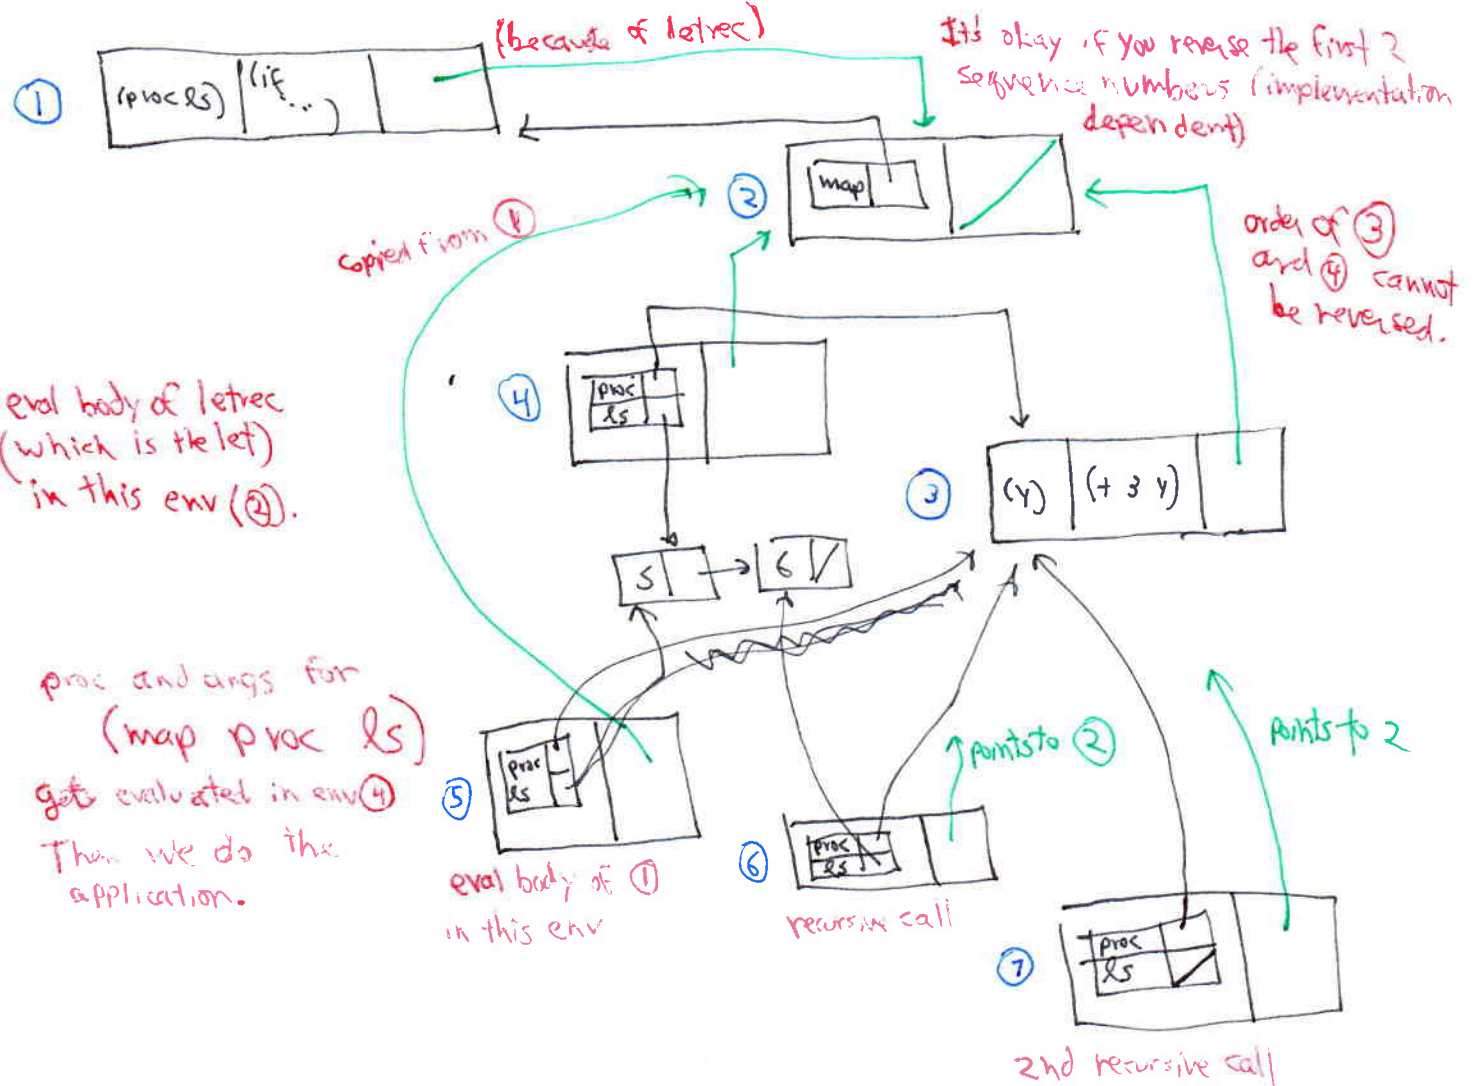 (because of letrec)
It's okay if you reverse the first 2
sequence numbers (implementation
dependent)
①
(proc ls)
(if
...)
②
map
copied from ①
order of ③
and ④ cannot
be reversed.
④
proc
ls
eval body of letrec
(which is the let)
in this env (②).
③
(y)
(+ 3 y)
5
6
proc and args for
(map proc ls)
gets evaluated in env ④
Then we do the
application.
⑤
proc
ls
eval body of ①
in this env
points to ②
points to 2
⑥
proc
ls
recursive call
⑦
proc
ls
2nd recursive call